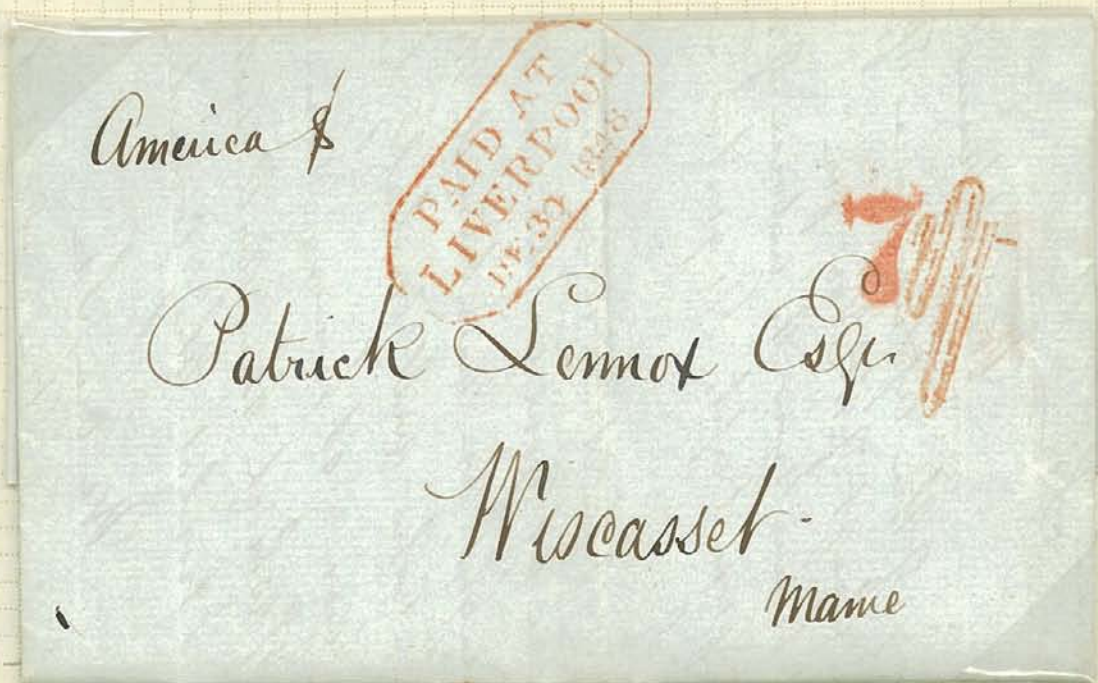 America &
PAID AT
LIVERPOOL
DE 30 1848
7
Patrick Lennox Esqr.
Wiscasset.
Maine